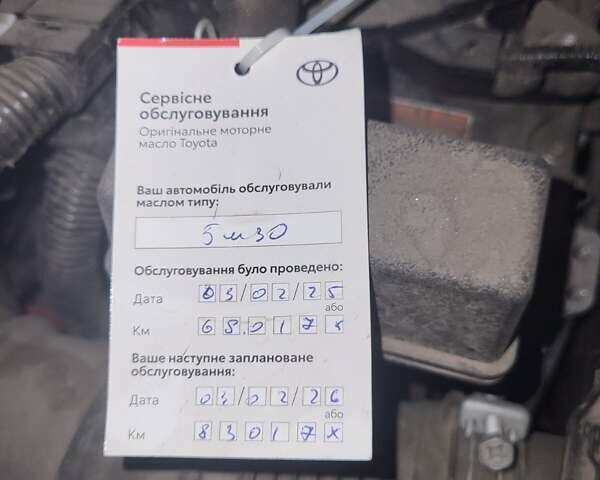 Сервісне
обслуговування
Оригінальне моторне
масло Toyota
Ваш автомобіль обслуговували
маслом типу:
5w30
Обслуговування було проведено:
Дата 03/02/25
або
Км 68017x
Ваше наступне заплановане
обслуговування:
Дата 03/02/26
або
Км 83017x